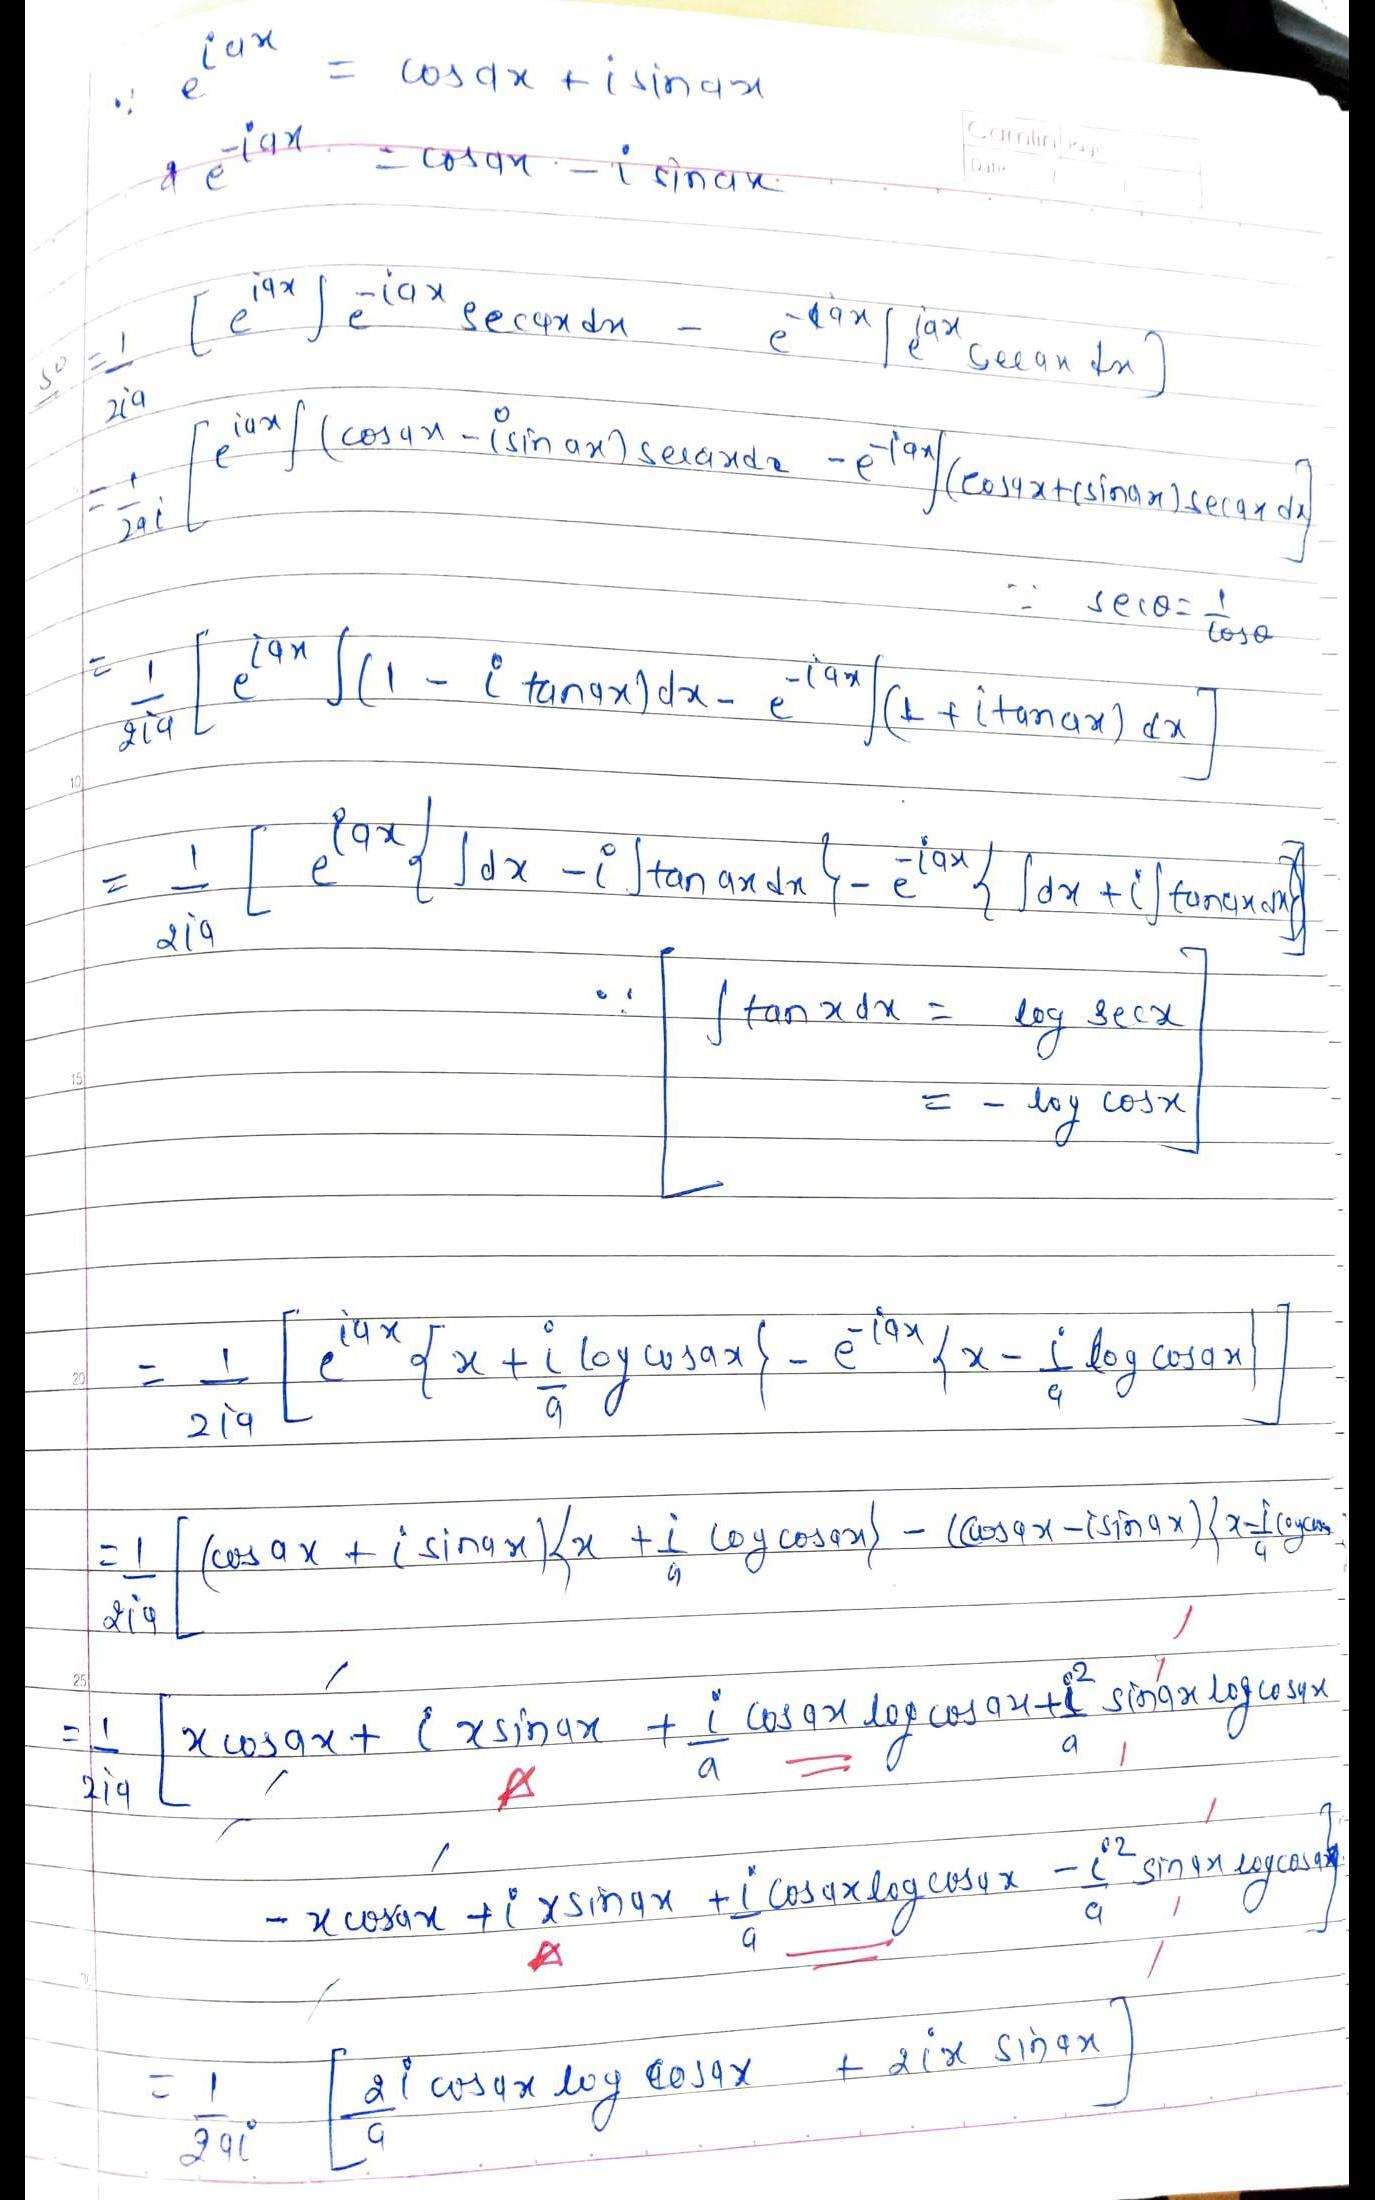 ∵ e^{iax} = cosax + i sinax
& e^{-iax} = cosax - i sinax
Camlin Page
Date / /
so = 1/2ia [e^{iax} ∫ e^{-iax} secax dx - e^{-iax} ∫ e^{iax} secax dx]
= 1/2ai [e^{iax} ∫ (cosax - i sin ax) secax dx - e^{-iax} ∫ (cosax + i sinax) secax dx]
∵ secθ = 1/cosθ
= 1/2ia [e^{iax} ∫ (1 - i tanax) dx - e^{-iax} ∫ (1 + i tanax) dx]
10
= 1/2ia [e^{iax} { ∫ dx - i ∫ tan ax dx } - e^{-iax} { ∫ dx + i ∫ tanax dx }]
∵ [ ∫ tan x dx = log secx
15
= - log cosx ]
= 1/2ia [e^{iax} { x + i/a log cosax } - e^{-iax} { x - i/a log cosax }]
20
= 1/2ia [(cos ax + i sinax) { x + i/a log cosax } - (cosax - i sinax) { x - i/a log cos
25
= 1/2ia [x cosax + i x sinax + i/a cosax log cosax + i²/a sinax log cosax
- x cosax + i x sinax + i/a cosax log cosax - i²/a sinax log cosax]
= 1/2ai [2i/a cosax log cosax + 2ix sinax]